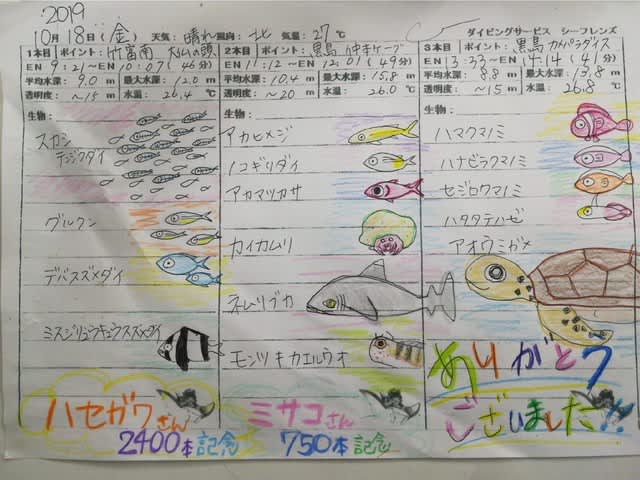 2019
10月18日(金) 天気: 晴れ 風向: 北 気温: 27℃ ダイビングサービス シーフレンズ
1本目 ポイント: 竹富南 大仏の頭
EN 9:21~EN 10:07(46分)
平均水深: 9.0m 最大水深: 12.0m
透明度: ~15m 水温: 26.4℃
生物:
スカシ
テンジクダイ
グルクン
デバスズメダイ
ミスジリュウキュウスズメダイ
ハセガワさん
2400本記念
2本目 ポイント: 黒島 仲本ケーブ
EN 11:12~EN 12:01(49分)
平均水深: 10.4m 最大水深: 15.8m
透明度: ~20m 水温: 26.0℃
生物:
アカヒメジ
ノコギリダイ
アカマツカサ
カイカムリ
ネムリブカ
モンツキカエルウオ
ミサコさん
750本記念
3本目 ポイント: 黒島 カメパラダイス
EN 13:33~EN 14:14(41分)
平均水深: 8.8m 最大水深: 13.8m
透明度: ~15m 水温: 26.8℃
生物:
ハマクマノミ
ハナビラクマノミ
セジロクマノミ
ハタタテハゼ
アオウミガメ
ありがとう
ございました!!